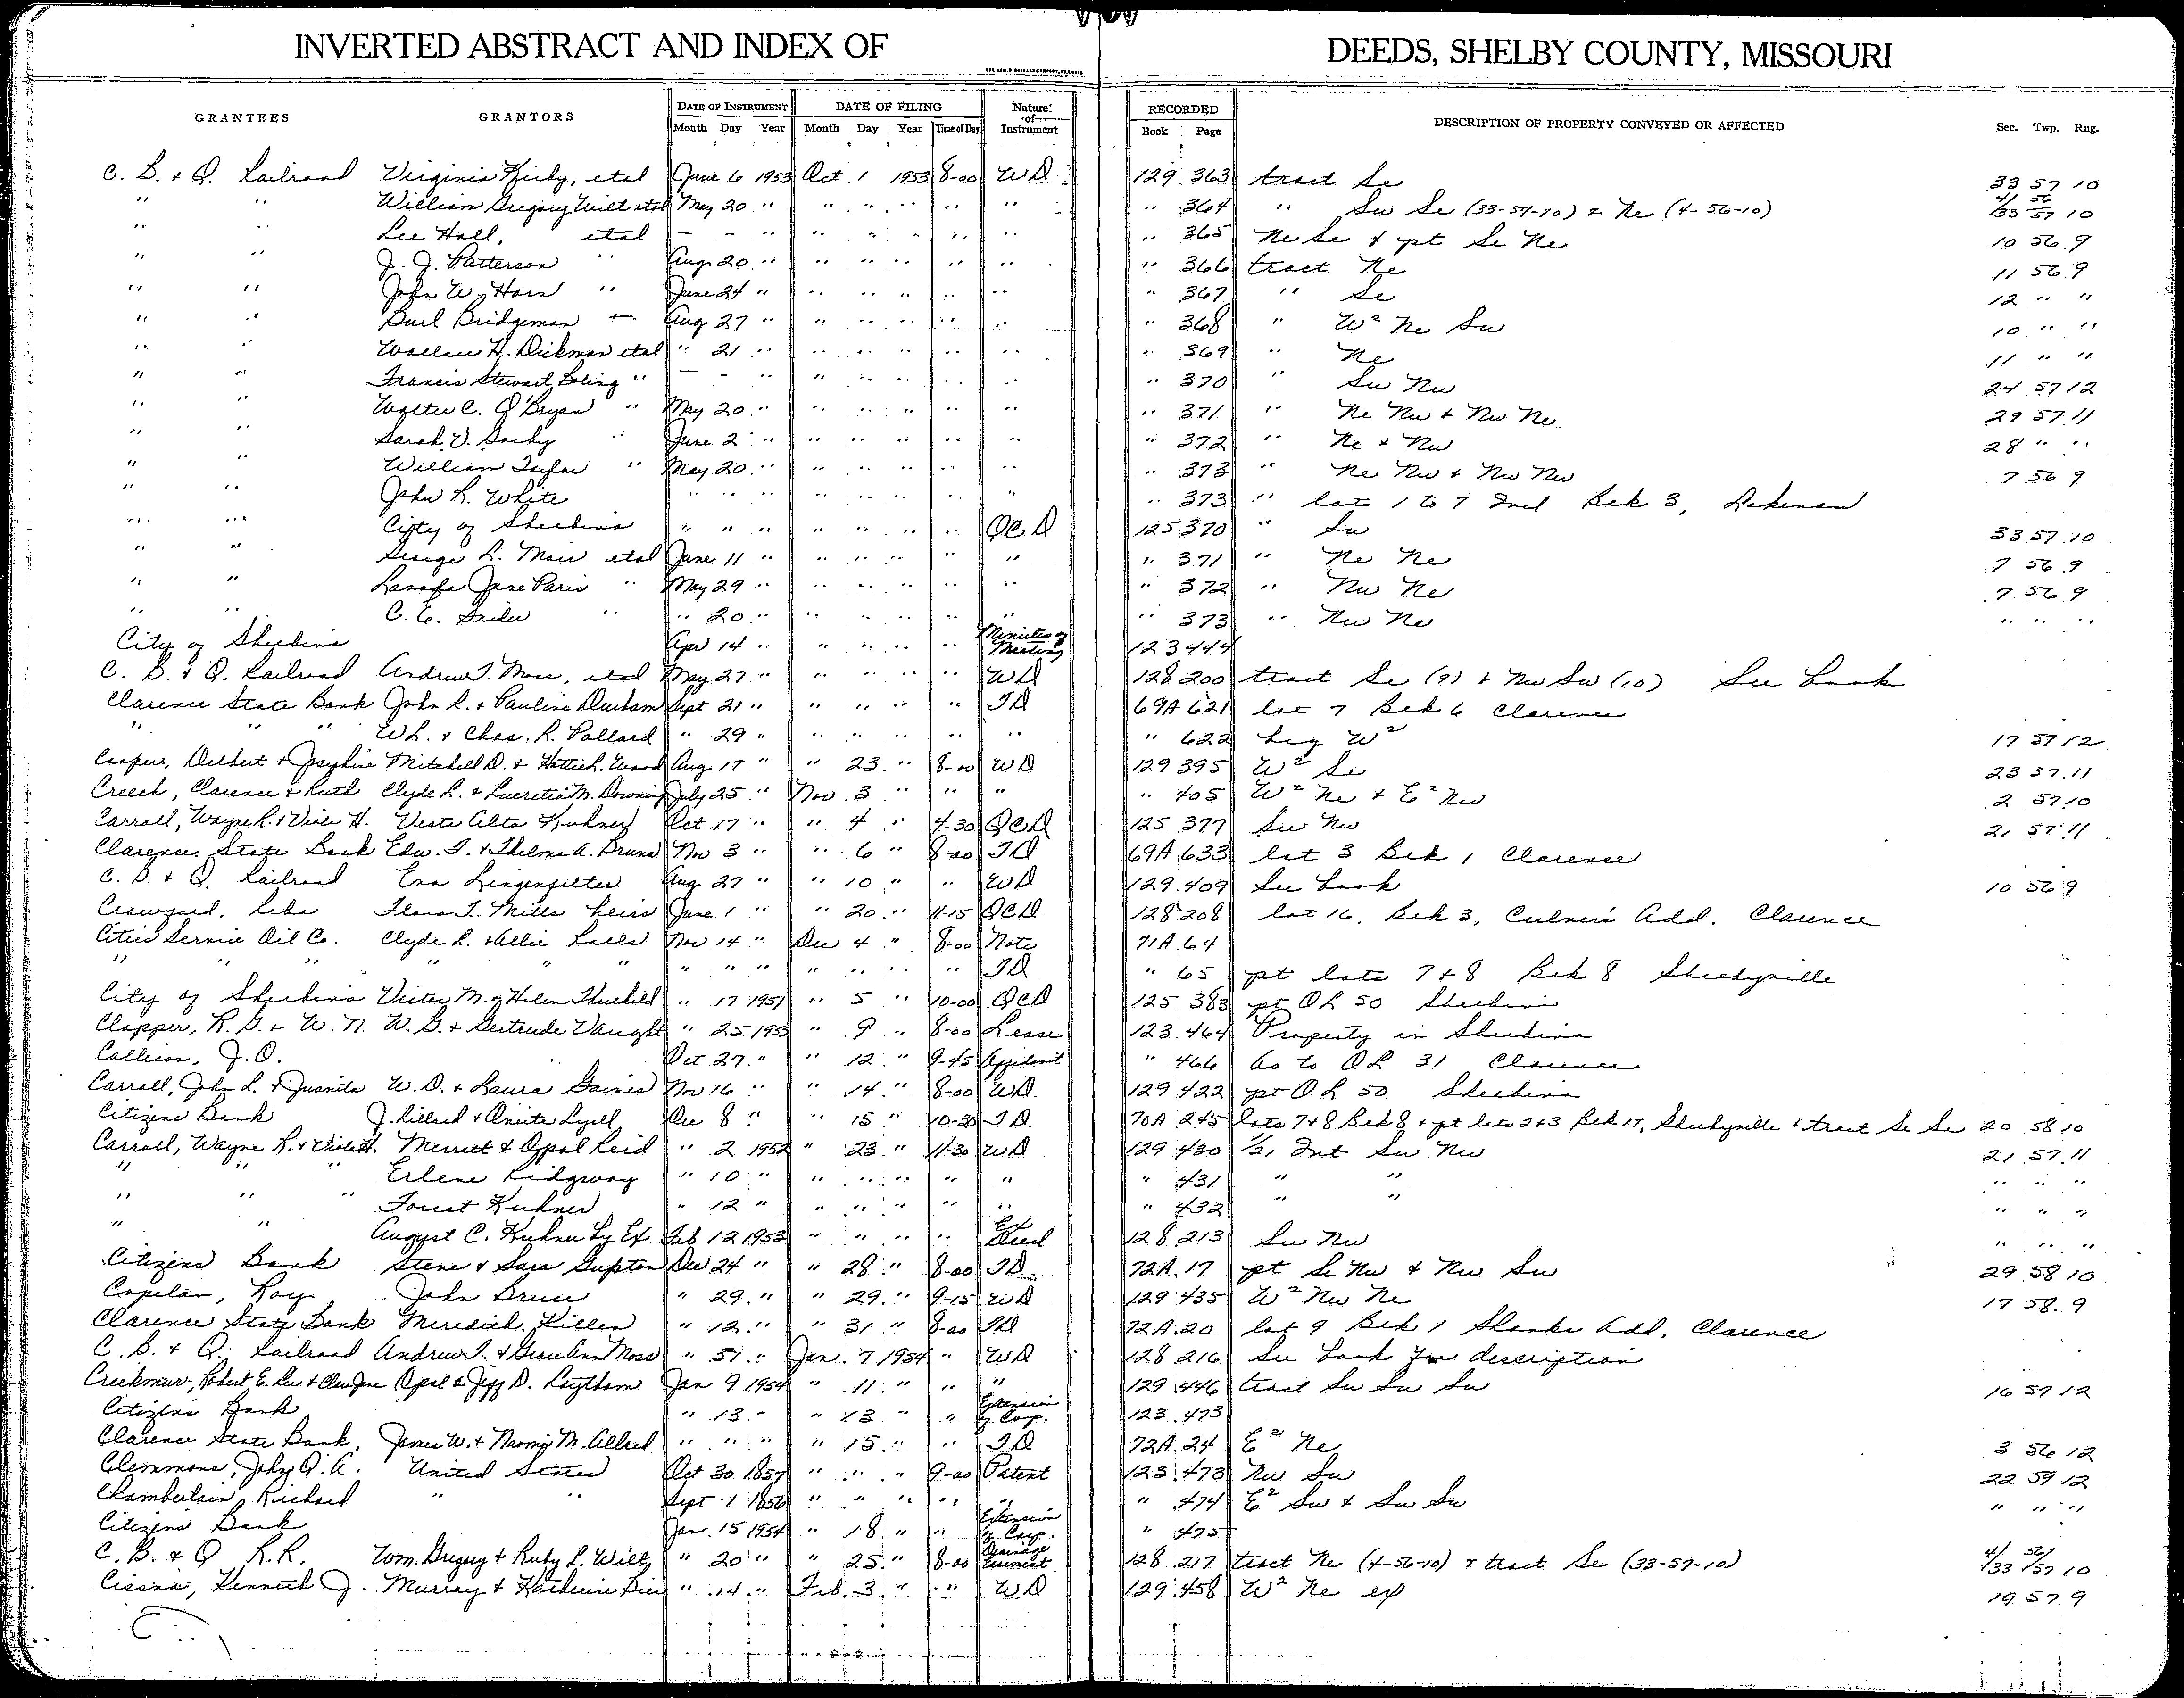 INVERTED ABSTRACT AND INDEX OF DEEDS, SHELBY COUNTY, MISSOURI
GRANTEES GRANTORS DATE OF INSTRUMENT DATE OF FILING Nature of Instrument RECORDED DESCRIPTION OF PROPERTY CONVEYED OR AFFECTED Sec. Twp. Rng.
Month Day Year Month Day Year Time of Day Book Page
C. B. & Q. Railroad Virginia Kirby, etal June 6 1953 Oct. 1 1953 8-00 WD 129 363 tract Se 33 57 10
" " William Gregory Wilt etal May 20 " " " " " " " 364 " Sw Se (33-57-10) & Ne (4-56-10) 4/33 56/57 10
" " Lee Hall, etal - - " " " " " " " 365 Ne Se & pt Se Ne 10 56 9
" " J. J. Patterson " Aug. 20 " " " " " " " 366 tract Ne 11 56 9
" " John W. Horn " June 24 " " " " " " " 367 " Se 12 " "
" " Burl Bridgeman Aug 27 " " " " " " " 368 " W² Ne Sw 10 " "
" " Wallace H. Dickman etal " 21 " " " " " " " 369 " Ne 11 " "
" " Francis Stewart Boling " - - " " " " " " " 370 " Sw Nw 24 57 12
" " Walter C. O'Bryan " May 20 " " " " " " " 371 " Ne Nw & Nw Ne 29 57 11
" " Sarah V. " June 2 " " " " " " " 372 " Ne & Nw 28 " "
" " William Taylor " May 20 " " " " " " " 373 " Ne Nw & Nw Nw 7 56 9
" " John R. White " " " " " " " " " 373 " lots 1 to 7 Incl Blk 3, Lakenan
" " City of Shelbina " " " " " " " QCD 125 370 " Sw 33 57 10
" " George R. etal June 11 " " " " " " " 371 " Ne Ne 7 56 9
" " Jane Paris " May 29 " " " " " " " 372 " Nw Ne 7 56 9
" " C. E. Snider " " 20 " " " " " " " 373 " Nw Ne " " "
City of Shelbina Apr 14 " " " " " Minutes of Meeting 123 444
C. B. & Q. Railroad Andrew T. Moss, etal May 27 " " " " " WD 128 200 tract Se (9) & Nw Sw (10) See book
Clarence State Bank John R. & Pauline Durham Sept 21 " " " " " TD 69A 621 lot 7 Blk 6 Clarence
" " " W L. & Chas. R. Pollard " 29 " " " " " " " 622 W² 17 57 12
Cooper, Delbert & Josephine Mitchell D. & Hattie L. Wood Aug 17 " " 23 " 8-00 WD 129 395 W² Se 23 57 11
Creech, Clarence & Ruth Clyde L. & Lucretia M. Downing July 25 " Nov 3 " " " " 405 W² Ne & E² Nw 2 57 10
Carroll, Wayne R. & Violet H. Vesta Alta Kuhner Oct 17 " " 4 " 4-30 QCD 125 377 Sw Nw 21 57 11
Clarence State Bank Edw. T. & Thelma A. Nov 3 " " 6 " 8-00 TD 69A 633 lot 3 Blk 1 Clarence
C. B. & Q. Railroad Eva Lingenfelter Aug 27 " " 10 " " WD 129 409 See book 10 56 9
Crawford, Reba T. Mitts heirs June 1 " " 20 " 11-15 QCD 128 208 lot 16, Blk 3, Culver's Add. Clarence
Cities Service Oil Co. Clyde R. & Allie Nov 14 " Dec 4 " 8-00 Note 71A 64
" " " " " " " " " " " " " TD " 65 pt lots 7 & 8 Blk 8 Shelbyville
City of Shelbina Victor M. & Helen " 17 1951 " 5 " 10-00 QCD 125 383 pt OL 50 Shelbina
Clapper, R. G. & W. N. W. G. & Gertrude Vaught " 25 1953 " 9 " 8-00 Lease 123 464 Property in Shelbina
Callison, J. O. Oct 27 " " 12 " 9-45 Affidavit " 466 As to OL 31 Clarence
Carroll, John L. & Juanita W. D. & Laura Gaines Nov 16 " " 14 " 8-00 WD 129 422 pt OL 50 Shelbina
Citizens Bank J. Lillard & Oneita Lyell Dec 8 " " 15 " 10-30 TD 70A 245 lots 7 & 8 Blk 8 & pt lots 2 & 3 Blk 17, Shelbyville & tract Se Se 20 58 10
Carroll, Wayne R. & Violet H. Merrett & Opal Reid " 2 1952 " 23 " 11-30 WD 129 430 1/21 Int Sw Nw 21 57 11
" " " Erlene Ridgway " 10 " " " " " " " 431 " " " " "
" " " Forest Kuhner " 12 " " " " " " " 432 " " " " "
" " August C. Kuhner by Ex Feb 12 1953 " " " " Ex Deed 128 213 Sw Nw " " "
Citizens Bank Steve & Sara Gupton Dec 24 " " 28 " 8-00 TD 72A 17 pt Se Nw & Nw Sw 29 58 10
Copelan, Roy John Bruce " 29 " " 29 " 9-15 WD 129 435 W² Nw Ne 17 58 9
Clarence State Bank Meredith Killen " 12 " " 31 " 8-00 TD 72A 20 lot 9 Blk 1 Shanks Add, Clarence
C. B. & Q. Railroad Andrew T. & Grace Ann Moss " 51 " Jan. 7 1954 " WD 128 216 See book for description
Creekmur, Robert E. Lee & Opal & Jeff D. Raytham Jan 9 1954 " 11 " " " 129 446 tract Sw Sw Sw 16 57 12
Citizens Bank " 13 " " 13 " " Extension of Corp. 123 473
Clarence State Bank, James W. & Naomi M. Allred " " " " 15 " " TD 72A 24 E² Ne 3 56 12
Clemmons, John Q. A. United States Oct 30 1857 " " " 9-00 Patent 123 473 Nw Sw 22 59 12
Chamberlain, Richard " " Sept 1 1856 " " " " " " 474 E² Sw & Sw Sw " " "
Citizens Bank Jan. 15 1954 " 18 " " Extension of Corp. " 475
C. B. & Q R. R. Wm. Gregory & Ruby L. Wilt " 20 " " 25 " 8-00 Drainage Easement 128 217 tract Ne (4-56-10) & tract Se (33-57-10) 4/33 56/57 10
Kenneth J. Murray & Katherine " 14 " Feb. 3 " " WD 129 458 W² Ne ex 19 57 9
C